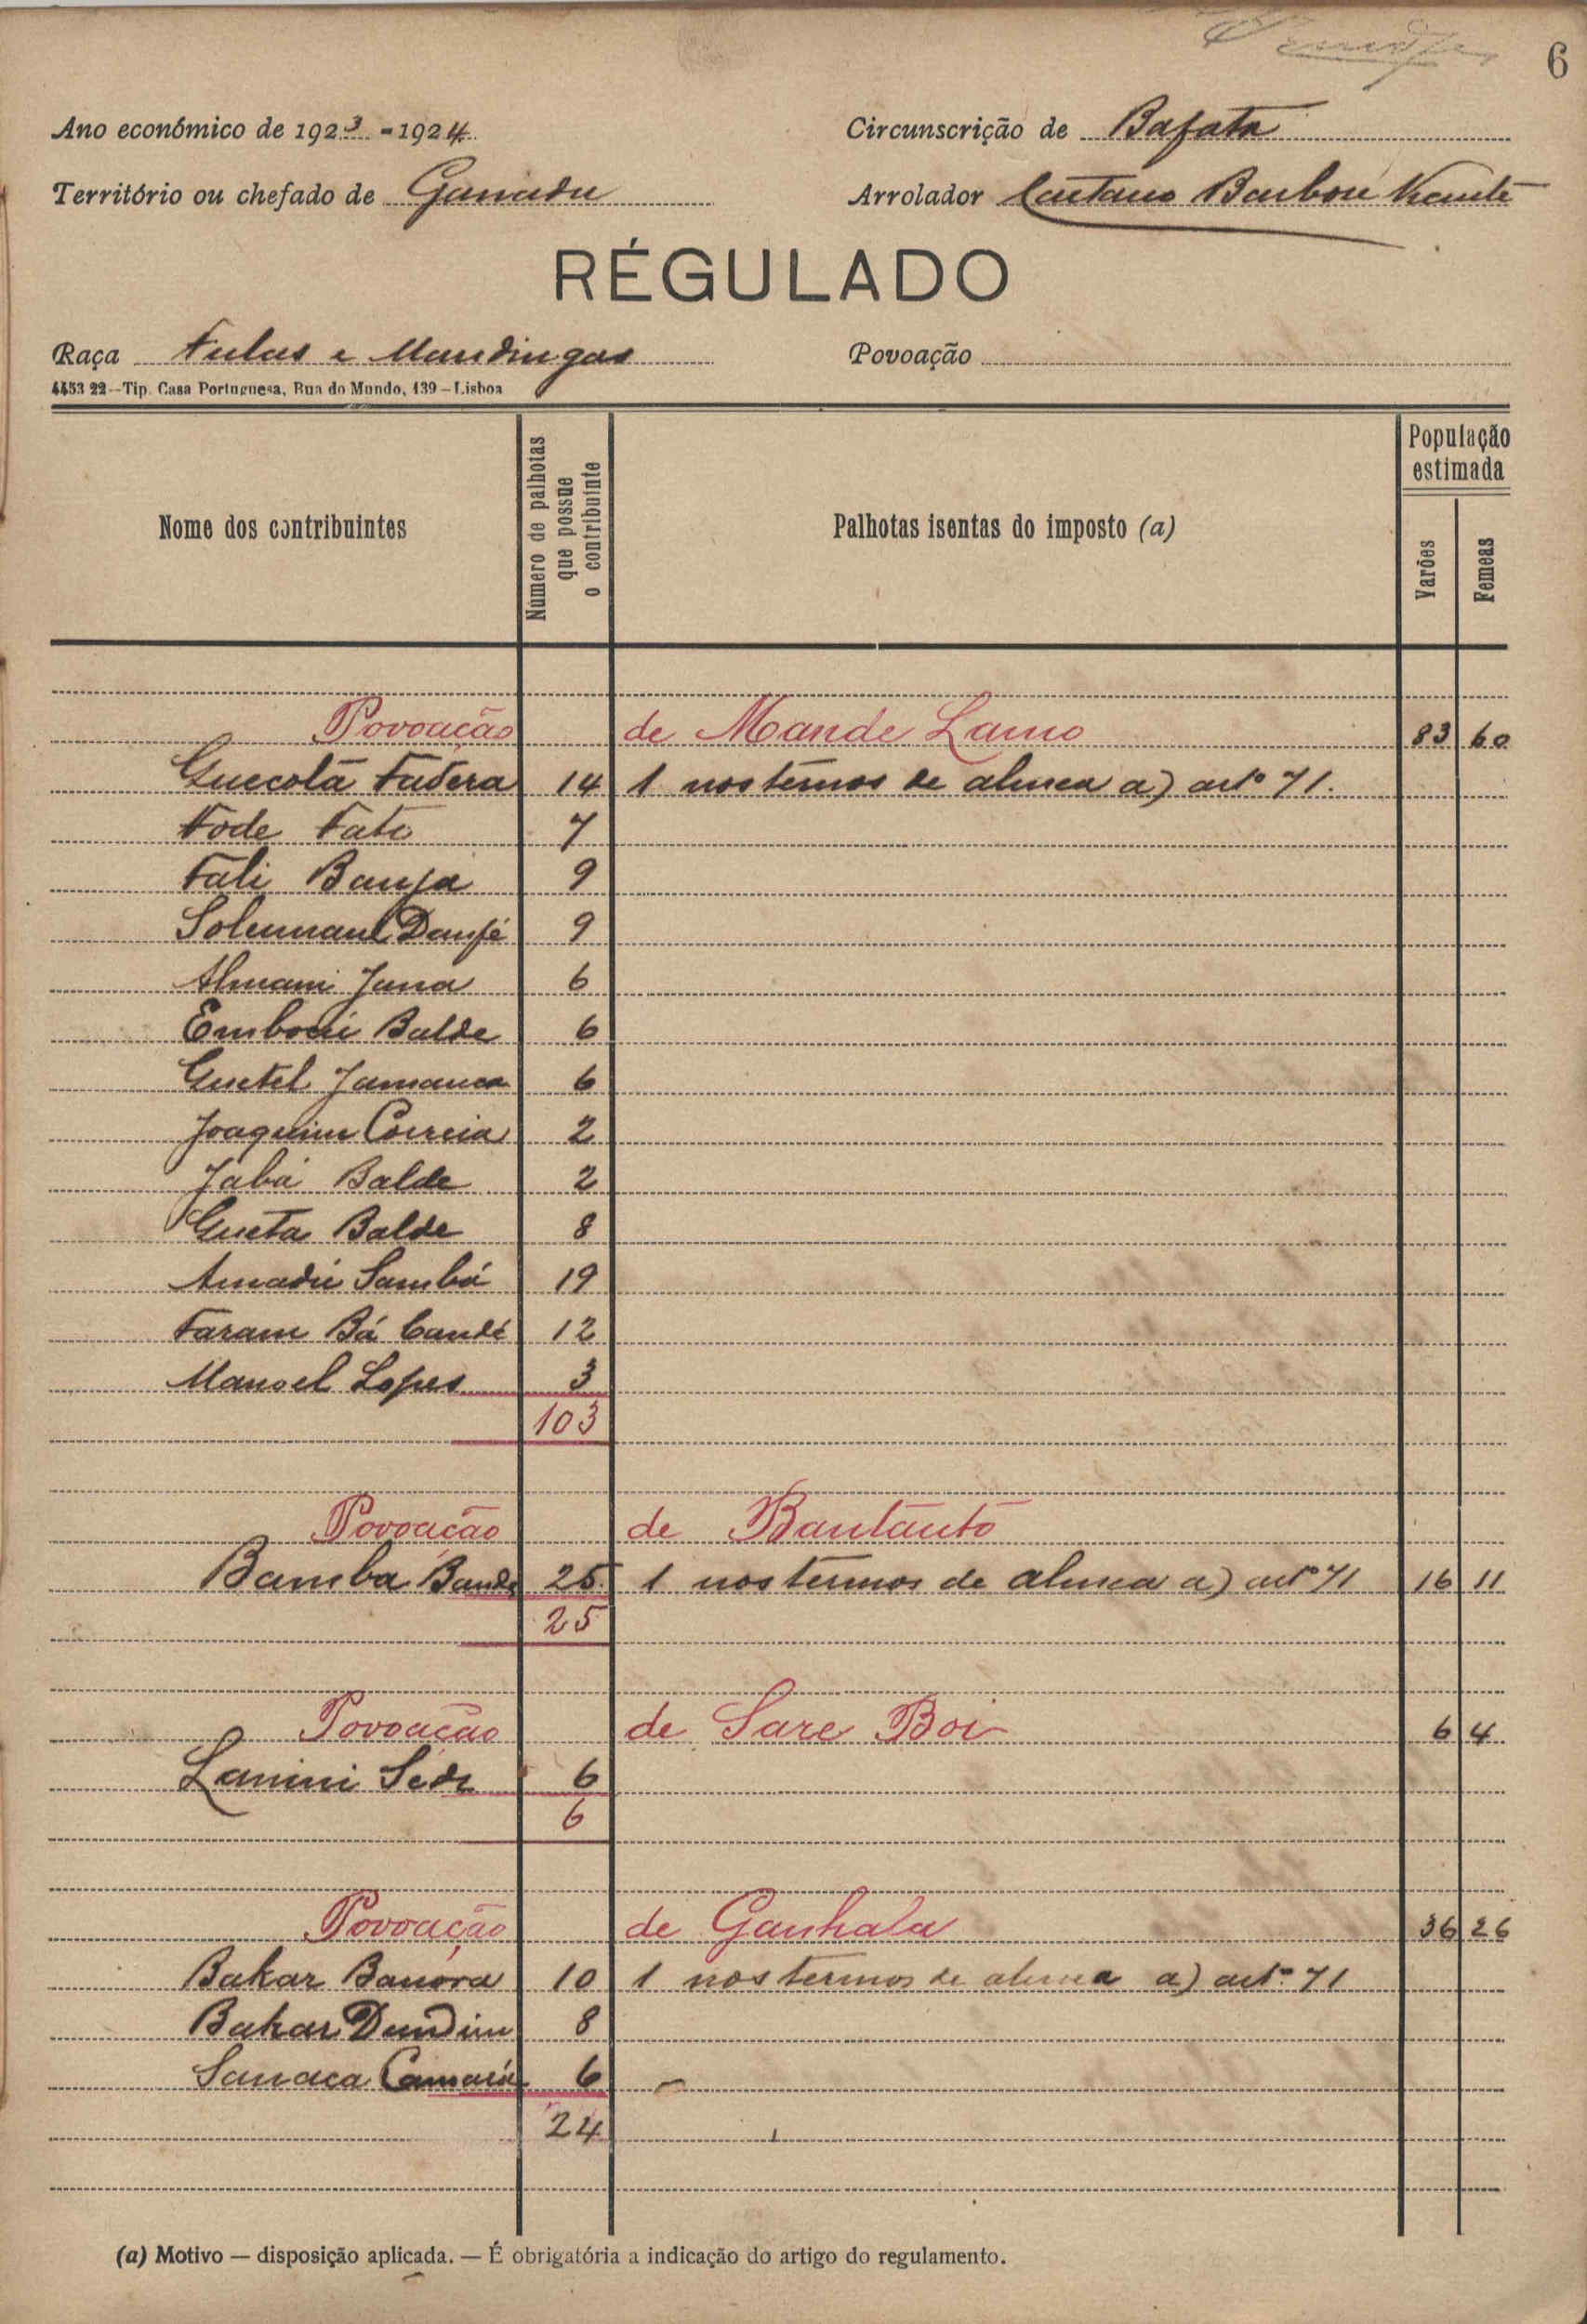 6
Ano económico de 1923-1924
Circunscrição de Bafatá
Território ou chefado de Ganadu
Arrolador Caetano Barbosa Vicente
RÉGULADO
Raça Fulas e Mandingas
Povoação
4453 22--Tip. Casa Portuguesa, Rua do Mundo, 139 – Lisboa
Nome dos contribuintes
Número de palhotas que possue o contribuinte
Palhotas isentas do imposto (a)
População estimada
Varões
Femeas
Povoação de Mande Lamo 83 60
Guecolá Fadera 14 1 nos termos de alinea a) artº 71.
Fode Fati 7
Fali Banja 9
Soleimane Danfé 9
Almami Juma 6
Emboai Balde 6
Guetel Jamanca 6
Joaquim Correia 2
Jabá Balde 2
Gueta Balde 8
Amadú Sambá 19
Faram Bá Candé 12
Manoel Lopes 3
103
Povoação de Bantanto
Bamba Bande 25 1 nos termos de alinea a) artº 71 16 11
25
Povoação de Sare Boi 6 4
Lamini Sede 6
6
Povoação de Ganhala 36 26
Bakar Banóra 10 1 nos termos de alinea a) artº 71
Bakar Dundim 8
Sanaca Camará 6
24
(a) Motivo — disposição aplicada. — É obrigatória a indicação do artigo do regulamento.